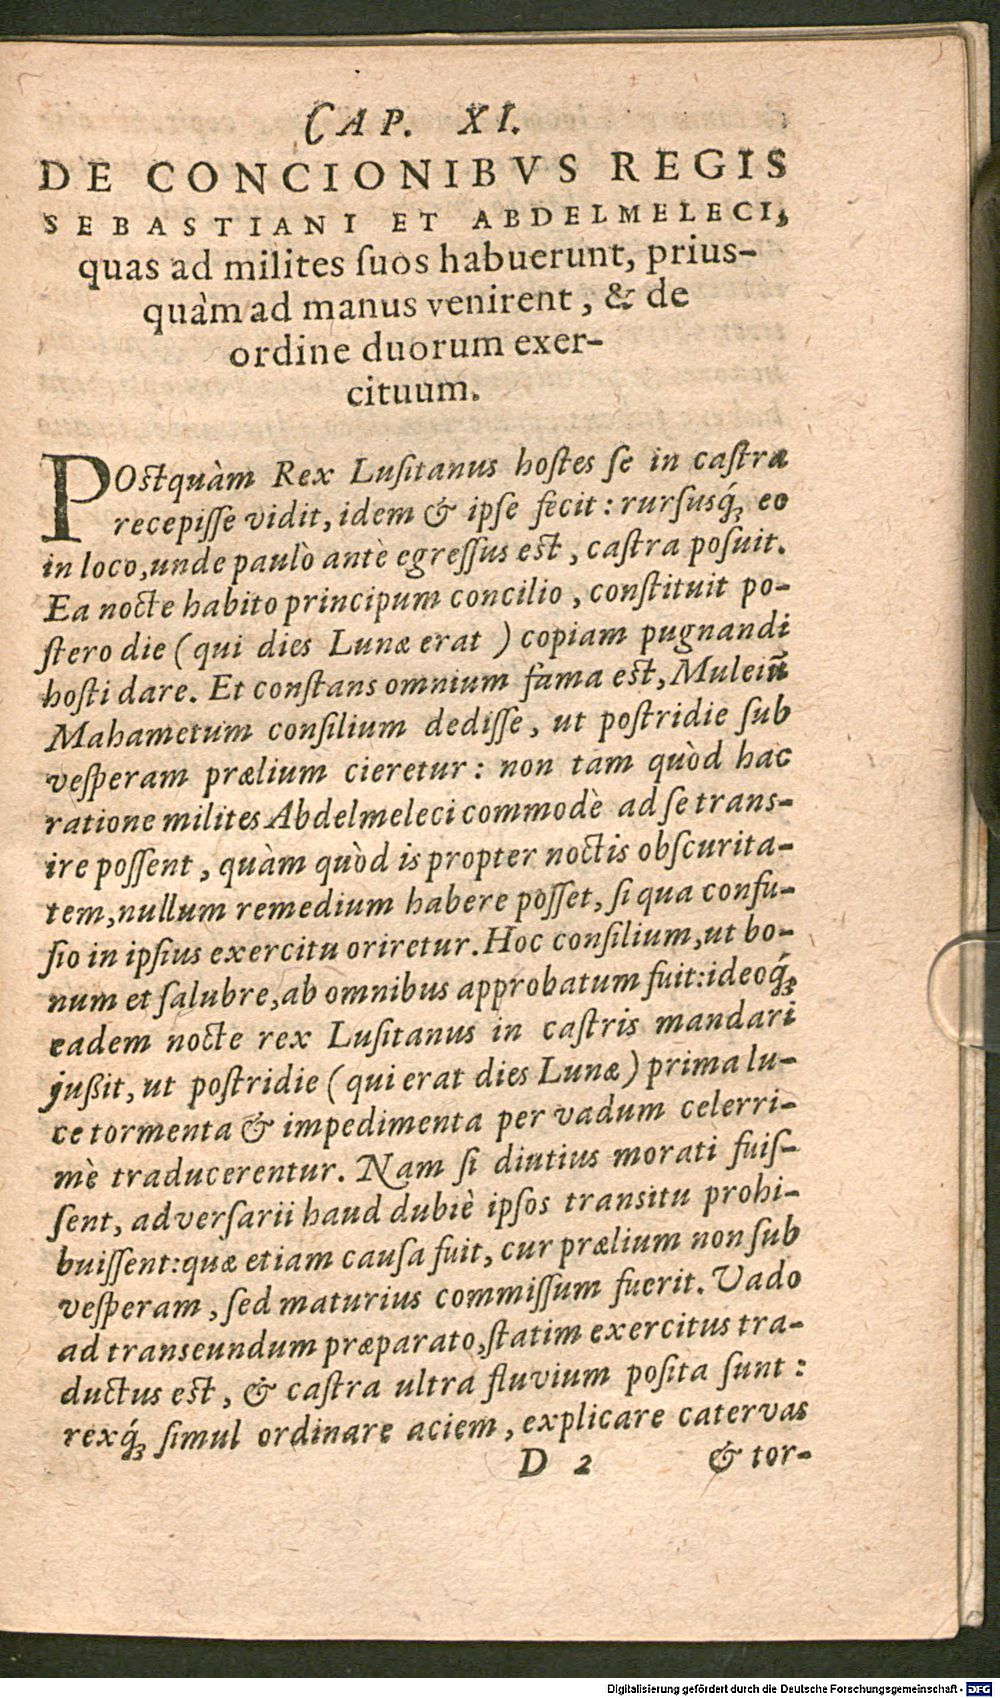 CAP. XI.
DE CONCIONIBVS REGIS
SEBASTIANI ET ABDELMELECI,
quas ad milites ſuos habuerunt, prius-
quàm ad manus venirent, & de
ordine duorum exer-
cituum.
POstquàm Rex Luſitanus hoſtes ſe in caſtra
recepiſſe vidit, idem & ipſe fecit: rurſusq́ꝫ eo
in loco, unde paulò antè egreſſus est, caſtra poſuit.
Ea nocte habito principum concilio, conſtituit po-
ſtero die (qui dies Lunæ erat) copiam pugnandi
hoſti dare. Et conſtans omnium fama est, Muleiū
Mahametum conſilium dediſſe, ut poſtridie ſub
veſperam prælium cieretur: non tam quòd hac
ratione milites Abdelmeleci commodè ad ſe trans-
ire poſſent, quàm quòd is propter noctis obſcurita-
tem, nullum remedium habere poſſet, ſi qua confu-
ſio in ipſius exercitu oriretur. Hoc conſilium, ut bo-
num et ſalubre, ab omnibus approbatum fuit: ideoq́ꝫ
eadem nocte rex Luſitanus in caſtris mandari
jußit, ut poſtridie (qui erat dies Lunæ) prima lu-
ce tormenta & impedimenta per vadum celerri-
mè traducerentur. Nam ſi diutius morati fuiſ-
ſent, adverſarii haud dubiè ipſos tranſitu prohi-
buiſſent: quæ etiam cauſa fuit, cur prælium non ſub
veſperam, ſed maturius commiſſum fuerit. Vado
ad transeundum præparato, ſtatim exercitus tra-
ductus est, & caſtra ultra fluvium poſita ſunt:
rexq́ꝫ ſimul ordinare aciem, explicare catervas
D 2 & tor-
Digitalisierung gefördert durch die Deutsche Forschungsgemeinschaft - DFG